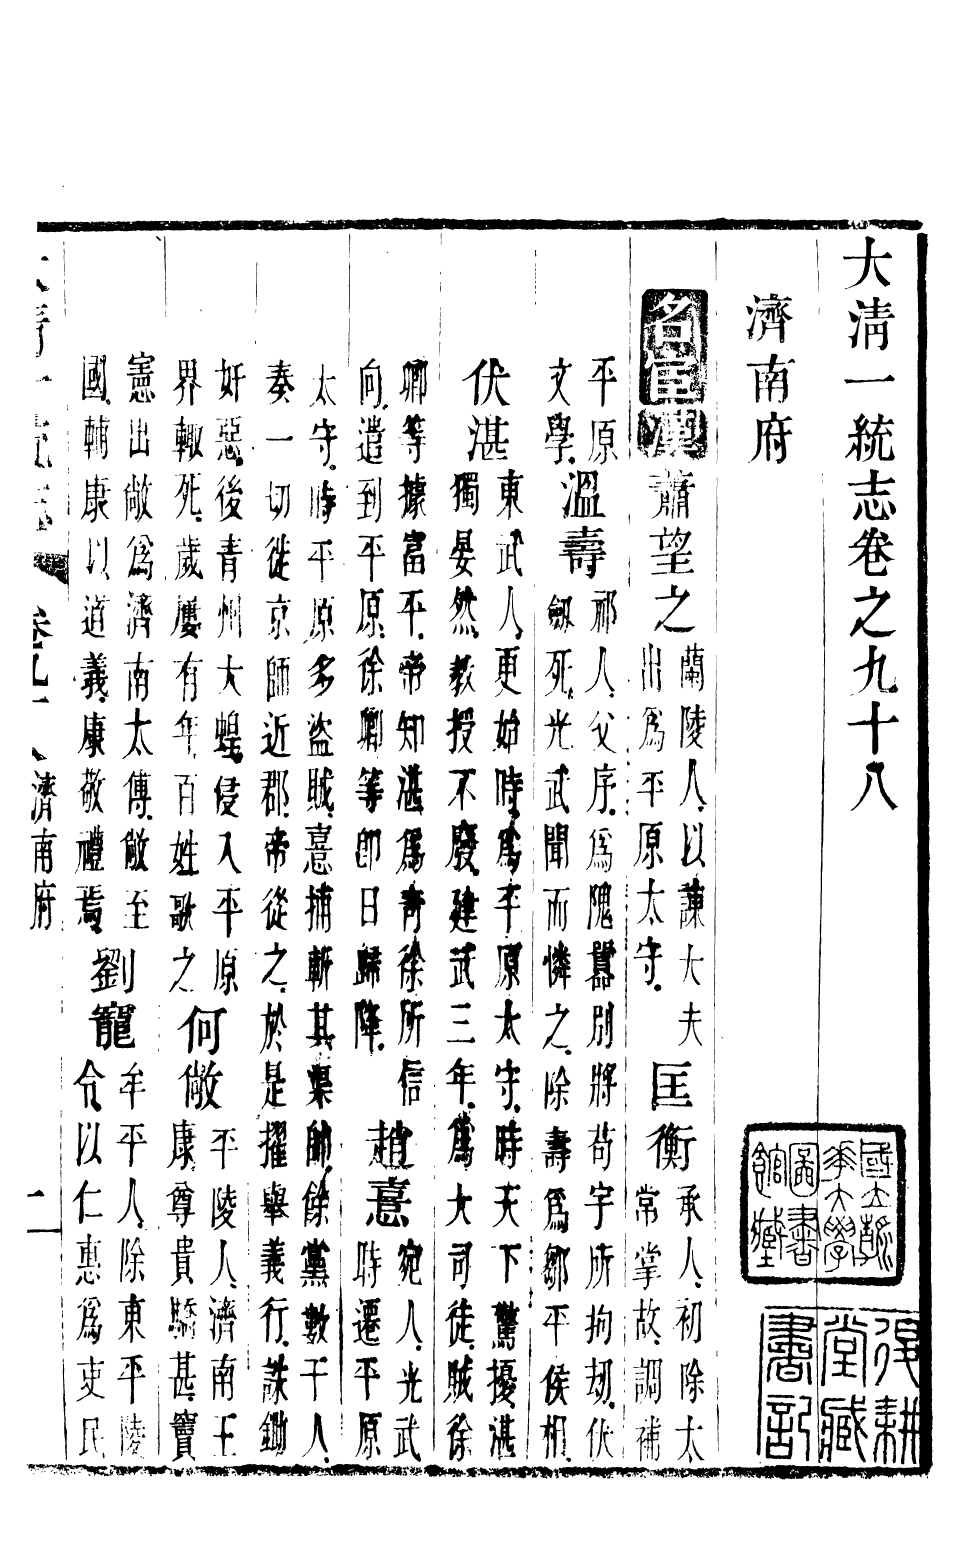 大清一統志卷之九十八
濟南府
名宦漢
蕭望之
蘭陵人、以諫大夫
出爲平原太守、
匡衡
承人、初除太
常掌故、調補
平原
文學、
溫壽
祁人、父序、爲隗囂別將苟宇所拘刼、伏
劔死、光武聞而憐之、除壽爲鄒平侯相、
伏湛
東武人、更始時、爲平原太守、時天下驚擾、湛
獨晏然、教授不廢、建武三年、爲大司徒、賊徐
卿等據富平、帝知湛爲青徐所信
向、遣到平原、徐卿等卽日歸降、
趙憙
宛人、光武
時遷平原
太守、時平原多盜賊、憙捕斬其渠帥、餘黨數千人、
奏一切徙京師近郡、帝從之、於是擢舉義行、誅鋤
奸惡、後青州大蝗、侵入平原
界輙死、歲屢有年、百姓歌之
何敞
平陵人、濟南王
康尊貴驕甚、竇
憲出敞爲濟南太傅、敞至
國、輔康以道義、康敬禮焉、
劉寵
牟平人、除東平陵
令、以仁惠爲吏民
大清一統志
卷九十八 濟南府
國立清華大學圖書館藏